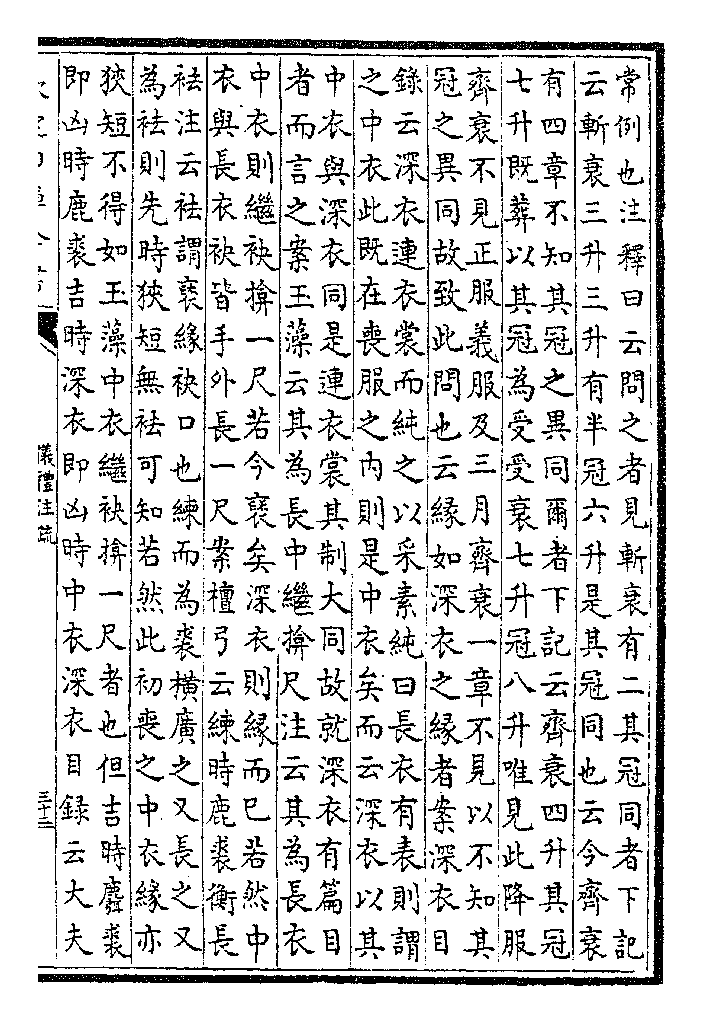 常例也注釋曰云問之者見斬衰有二其冠同者下記
云斬衰三升三升有半冠六升是其冠同也云今齊衰
有四章不知其冠之異同爾者下記云齊衰四升其冠
七升既葬以其冠為受受衰七升冠八升唯見此降服
齊衰不見正服義服及三月齊衰一章不見以不知其
冠之異同故致此問也云緣如深衣之緣者案深衣目
錄云深衣連衣裳而純之以采素純曰長衣有表則謂
之中衣此既在喪服之內則是中衣矣而云深衣以其
中衣與深衣同是連衣裳其制大同故就深衣有篇目
者而言之案玉藻云其為長中繼揜尺注云其為長衣
中衣則繼袂揜一尺若今褎矣深衣則緣而已若然中
衣與長衣袂皆手外長一尺案檀弓云練時鹿裘衡長
袪注云袪謂褎緣袂口也練而為裘橫廣之又長之又
為袪則先時狹短無袪可知若然此初喪之中衣緣亦
狹短不得如玉藻中衣繼袂揜一尺者也但吉時麛裘
即凶時鹿裘吉時深衣即凶時中衣深衣目錄云大夫
儀禮注疏
三十二